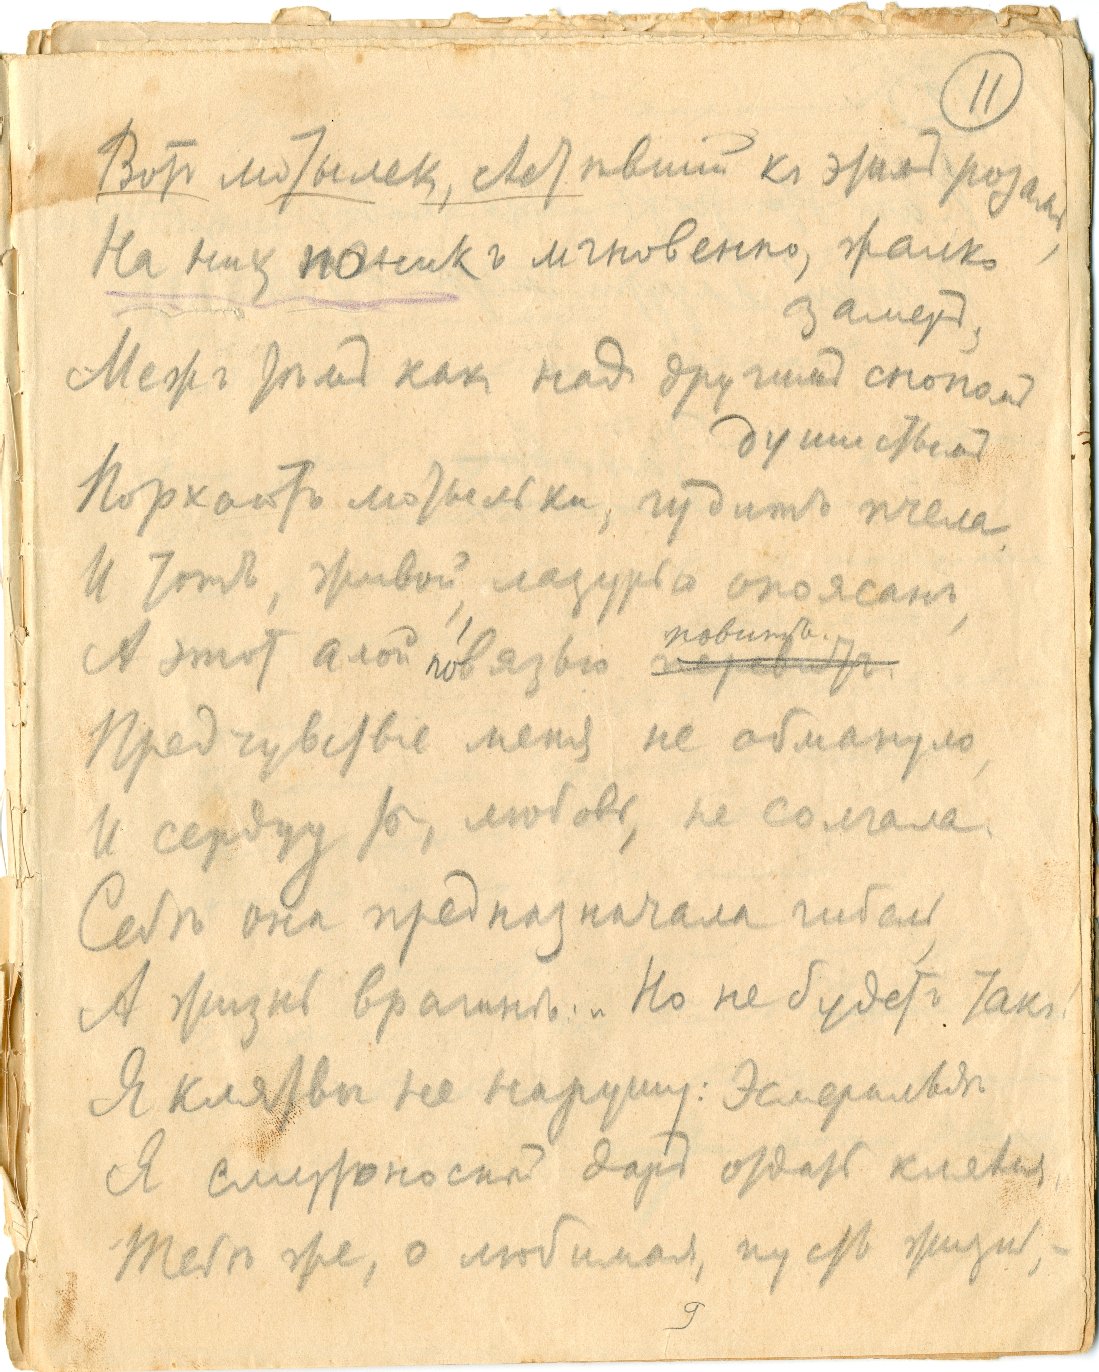 11
Вотъ мотылекъ, льнувшій къ этимъ розамъ,
На нихъ поникъ мгновенно, жалко
замеръ,
Межъ тѣмъ какъ надъ другимъ снопомъ
душистымъ
Порхаютъ мотыльки, гудитъ пчела.
И тотъ, живой, лазурью опоясанъ,
повитъ.
А этот алой повязью перевитъ.
Предчувствье меня не обмануло,
И сердцу ты, любовь, не солгала.
Себѣ она предназначала гибель,
А жизнь врагинѣ... Но не будетъ такъ!
Я клятвы не нарушу: Эсмеральдѣ
Я смертоносный даръ отдать клялся.
Тебѣ же, о любимая, пусть жизнь, –